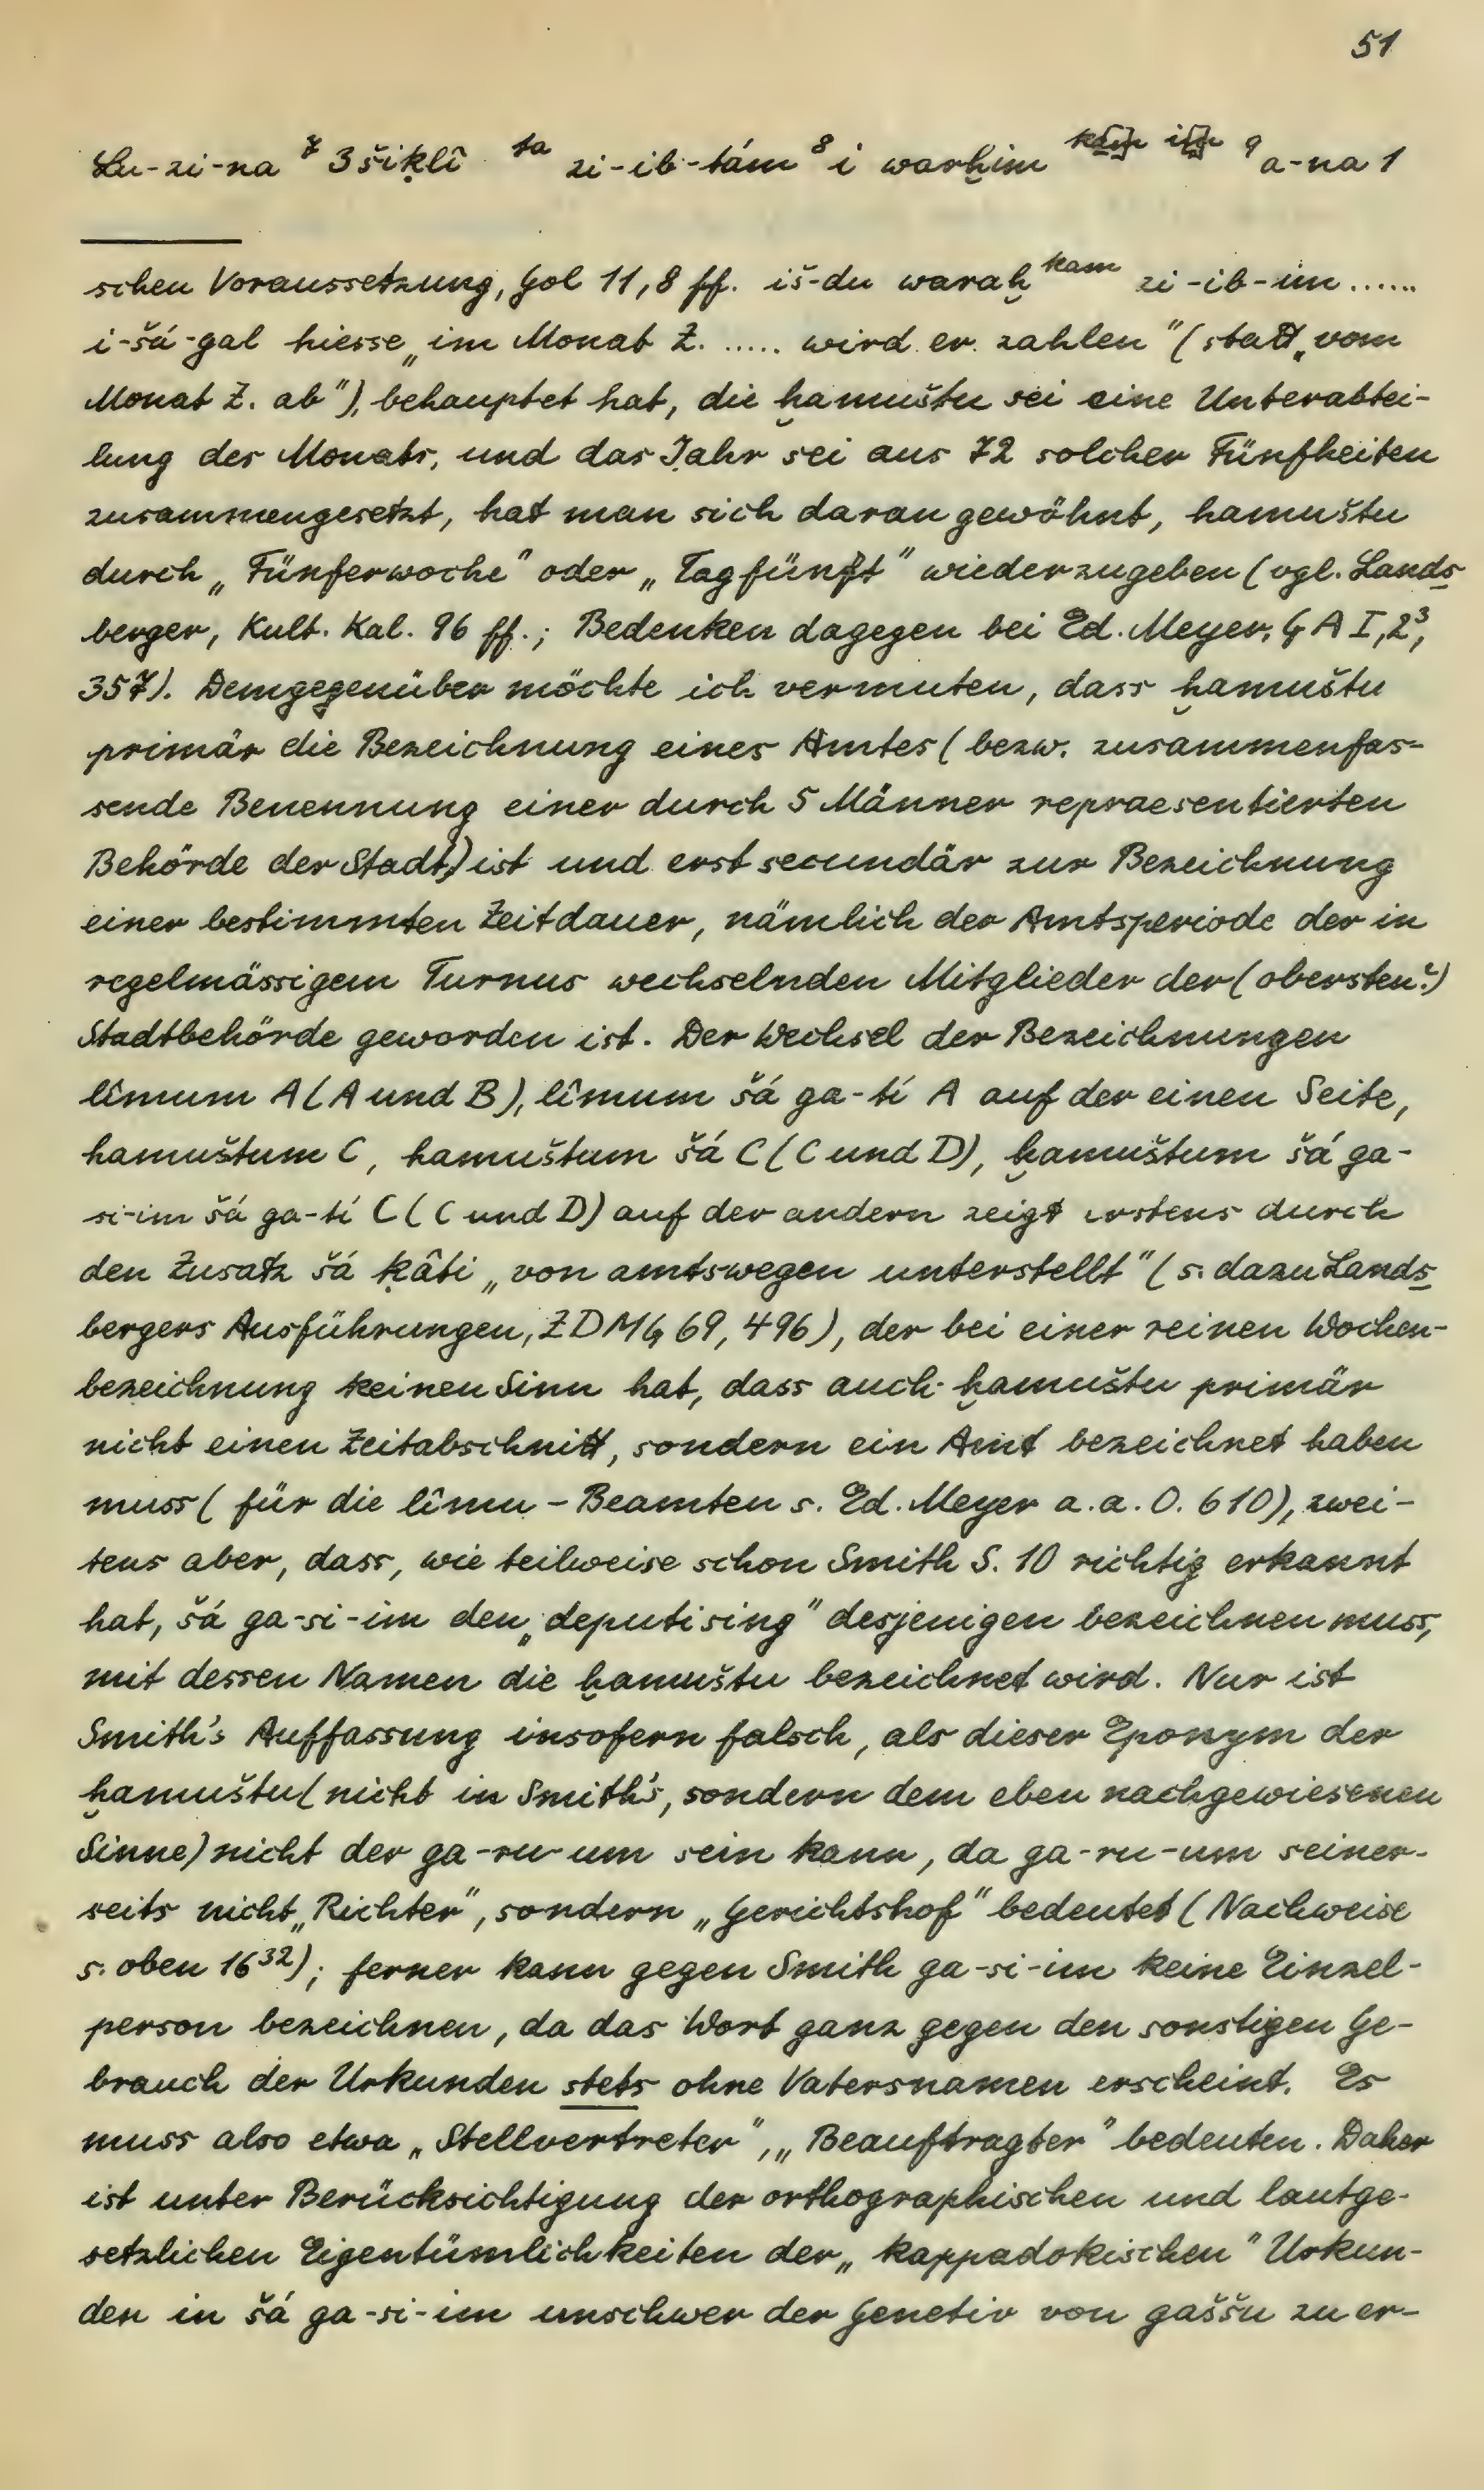 51
Zu-zi-na ⁷ 3 šiḳlî ᵗᵃ zi-ib-tám ⁸ i warḫim ᵏᵃᵐ ⁹ a-na 1
schen Voraussetzung, Gol 11,8 ff. iš-du waraḫ ᵏᵃᵐ zi-ib-im ......
i-šá-gal hiesse „im Monat Z. ..... wird er zahlen" (statt „vom
Monat Z. ab"), behauptet hat, die ḫamuštu sei eine Unterabtei-
lung des Monats, und das Jahr sei aus 72 solcher Fünfheiten
zusammengesetzt, hat man sich daran gewöhnt, hamuštu
durch „Fünferwoche" oder „Tagfünft" wiederzugeben (vgl. Lands
berger, Kult. Kal. 96 ff.; Bedenken dagegen bei Ed. Meyer, G A I,2³,
357). Demgegenüber möchte ich vermuten, dass ḫamuštu
primär die Bezeichnung eines Amtes (bezw. zusammenfas-
sende Benennung einer durch 5 Männer repraesentierten
Behörde der Stadt) ist und erst secundär zur Bezeichnung
einer bestimmten Zeitdauer, nämlich der Amtsperiode der in
regelmässigem Turnus wechselnden Mitglieder der (obersten?)
Stadtbehörde geworden ist. Der Wechsel der Bezeichnungen
lîmum A (A und B), lîmum šá ga-tí A auf der einen Seite,
hamuštum C, hamuštum šá C (C und D), ḫamuštum šá ga-
si-im šá ga-tí C (C und D) auf der andern zeigt erstens durch
den Zusatz šá ḳâti „von amtswegen unterstellt" (s. dazu Lands
bergers Ausführungen, ZDMG 69, 496), der bei einer reinen Wochen-
bezeichnung keinen Sinn hat, dass auch ḫamuštu primär
nicht einen Zeitabschnitt, sondern ein Amt bezeichnet haben
muss (für die lîmu-Beamten s. Ed. Meyer a.a.O. 610), zwei-
tens aber, dass, wie teilweise schon Smith S. 10 richtig erkannt
hat, šá ga-si-im den „deputising" desjenigen bezeichnen muss,
mit dessen Namen die ḫamuštu bezeichnet wird. Nur ist
Smith's Auffassung insofern falsch, als dieser Eponym der
ḫamuštu (nicht in Smith's, sondern dem eben nachgewiesenen
Sinne) nicht der ga-ru-um sein kann, da ga-ru-um seiner-
seits nicht „Richter", sondern „Gerichtshof" bedeutet (Nachweise
s. oben 16³²); ferner kann gegen Smith ga-si-im keine Einzel-
person bezeichnen, da das Wort ganz gegen den sonstigen Ge-
brauch der Urkunden stets ohne Vatersnamen erscheint. Es
muss also etwa „Stellvertreter", „Beauftragter" bedeuten. Daher
ist unter Berücksichtigung der orthographischen und lautge-
setzlichen Eigentümlichkeiten der „kappadokischen" Urkun-
den in šá ga-si-im unschwer der Genetiv von gaššu zu er-